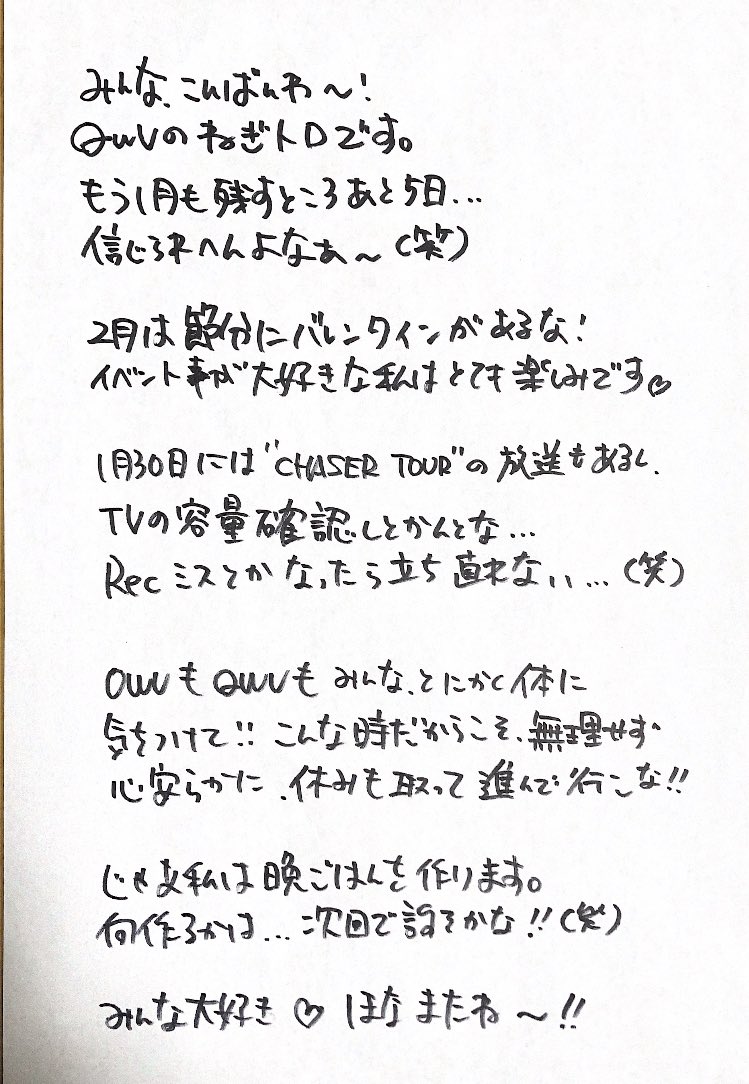 みんな、こんばんわ〜!
QWVのねぎトロです。
もう1月も残すところあと5日...
信じられへんよなぁ〜(笑)
2月は節分にバレンタインがあるな!
イベント事が大好きな私はとても楽しみです♡
1月30日には"CHASER TOUR"の放送もあるし、
TVの容量確認しとかんとな...
Recミスとかなったら立ち直れない...(笑)
OWVもQWVもみんな、とにかく体に
気をつけて!! こんな時だからこそ、無理せず
心安らかに、休みも取って進んで行こな!!
じゃあ私は晩ごはんを作ります。
何作るかは...次回で話そかな!!(笑)
みんな大好き♡ ほなまたね〜!!